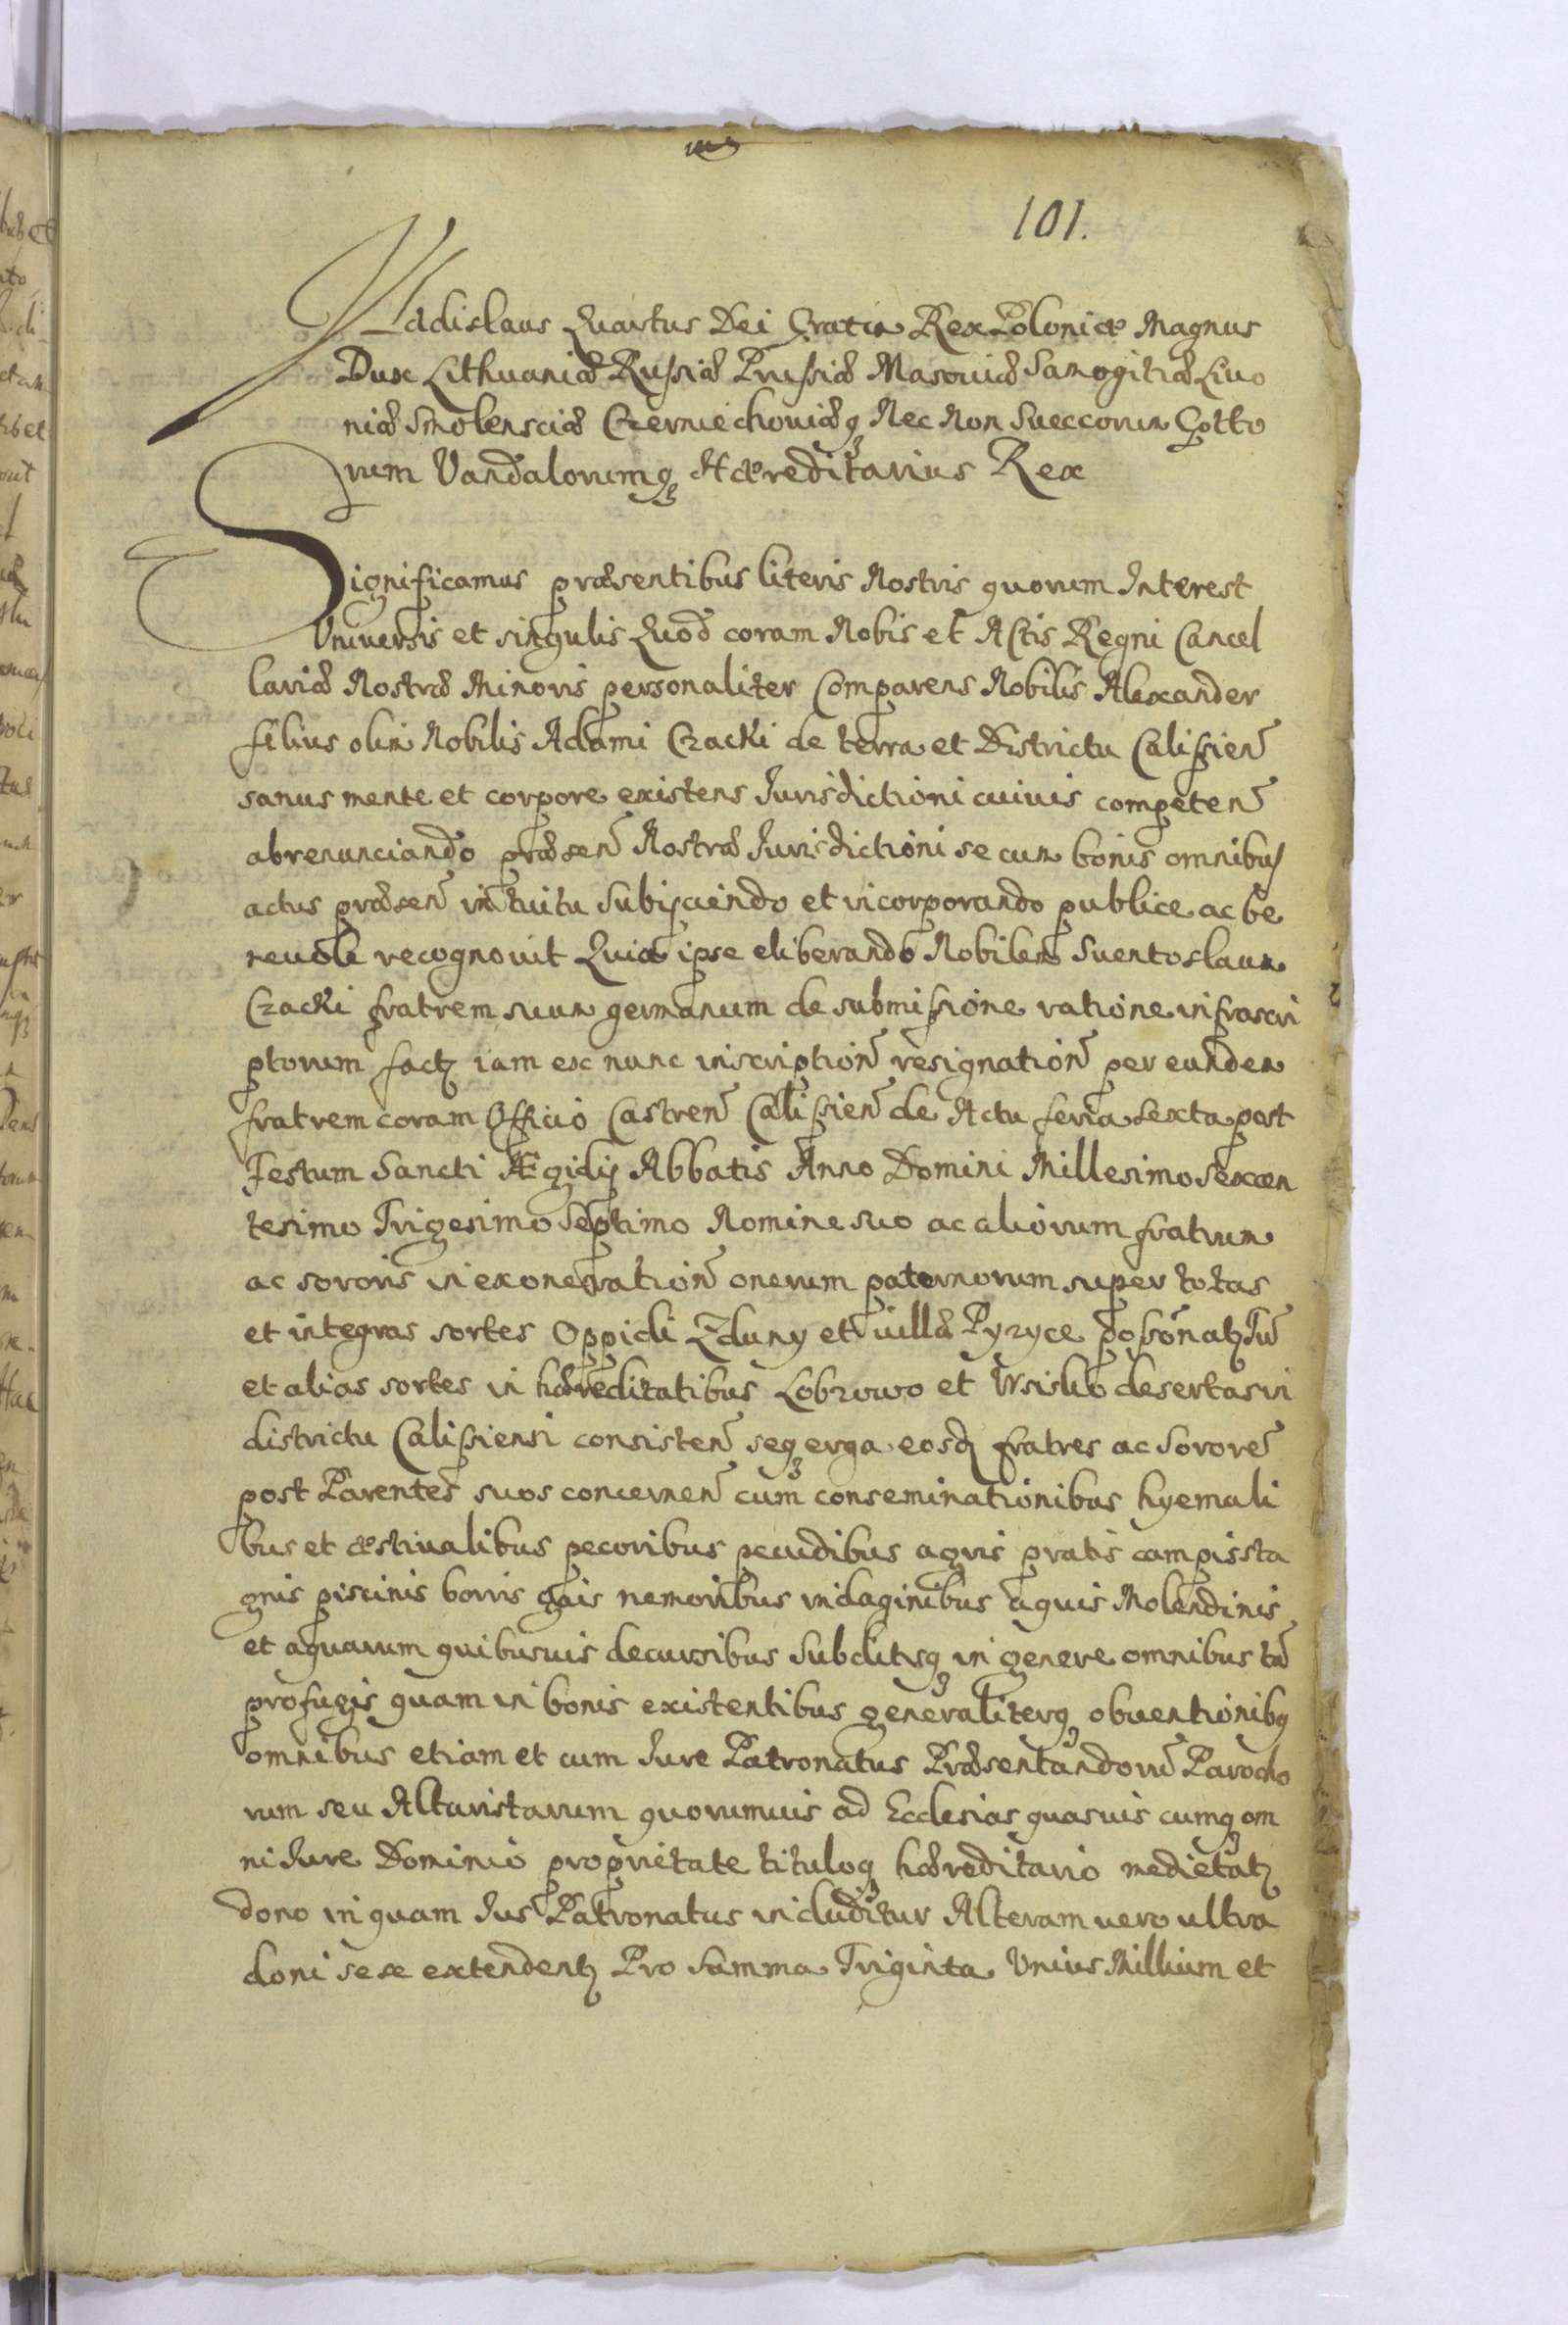 101.
Vladislaus Quartus Dei Gratia Rex Poloniæ Magnus
Dux Lithuaniæ Russiæ Prussiæ Masoviæ Samogitiæ Livo
niæ Smolensciæ Czerniechoviæq Nec Non Sueccorum Gotto
rum Vandalorumq Hæreditarius Rex
Significamus præsentibus literis Nostris quorum Interest
Universis et singulis Quod coram Nobis et Actis Regni Cancel
lariæ Nostræ Minoris personaliter Comparens Nobilis Alexander
filius olim Nobilis Adami Czacki de terra et Districtu Calissien
sanus mente et corpore existens Jurisdictioni cuivis competen
abrenunciando præsen Nostræ Jurisdictioni se cum bonis omnibus
actus præsen intuitu Subijciendo et incorporando publice ac be
nevole recognovit Quia ipse eliberando Nobilem Suentoslaum
Czacki fratrem suum germanum de submissione ratione infrascri
ptorum fact iam ex nunc inscription resignation per eundem
fratrem coram Officio Castren Calissien de Actu feria sexta post
Festum Sancti Ægidij Abbatis Anno Domini Millesimo Sexcen
tesimo Trigesimo Septimo Nomine suo ac aliorum fratrum
ac sororis in exoneration onerum paternorum super totas
et integras sortes Oppidi Zduny et villæ Pyzyce
et alias sortes in hæreditatibus Lobzowo et desertas in
districtu Calissiensi consisten seq erga eosd fratres ac Sorore
post Parentes suos concernen cum conseminationibus hyemali
bus et æstivalibus pecoribus pecudibus agris pratis campis sta
gnis piscinis borris gais nemoribus indaginibus aquis Molendinis
et aquarum quibusvis decursibus Subditisq in genere omnibus tā
profugis quam in bonis existentibus generaliterq obventionibq
omnibus etiam et cum Jure Patronatus Præsentandorū Parocho
rum seu Altaristarum quorumvis ad Ecclesias quasvis cumq om
ni Jure Dominio proprietate tituloq hæreditario medietat
dono in quam Jus Patronatus includitur Alteram vero ultra
doni sese extendent Pro Summa Triginta Unius Millium et